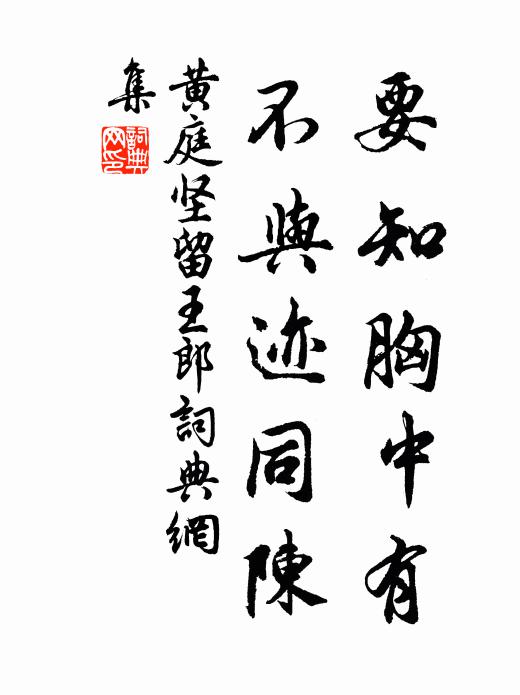 要知胸中有
不與迹同陳
黄庭坚留王郎詞典網
集
詞典
网印